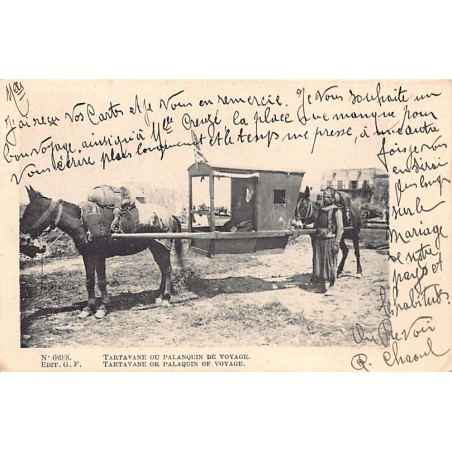 Mlle
J'ai reçu vos Cartes et Je Vous en remercie. Je Vous souhaite un
bon voyage, ainsi qu'à Mlle Creuzé la place que manque pour
Vous écrire plus longuement et le temps me presse, à une autre
fois je vous
en dirai
plus long
sur le
Mariage
de notre
pays et
habitudes.
Au Revoir
P. Chaoul
N° 689/8.
EDIT. G. F.
TARTAVANE OU PALANQUIN DE VOYAGE.
TARTAVANE OR PALAQUIN OF VOYAGE.